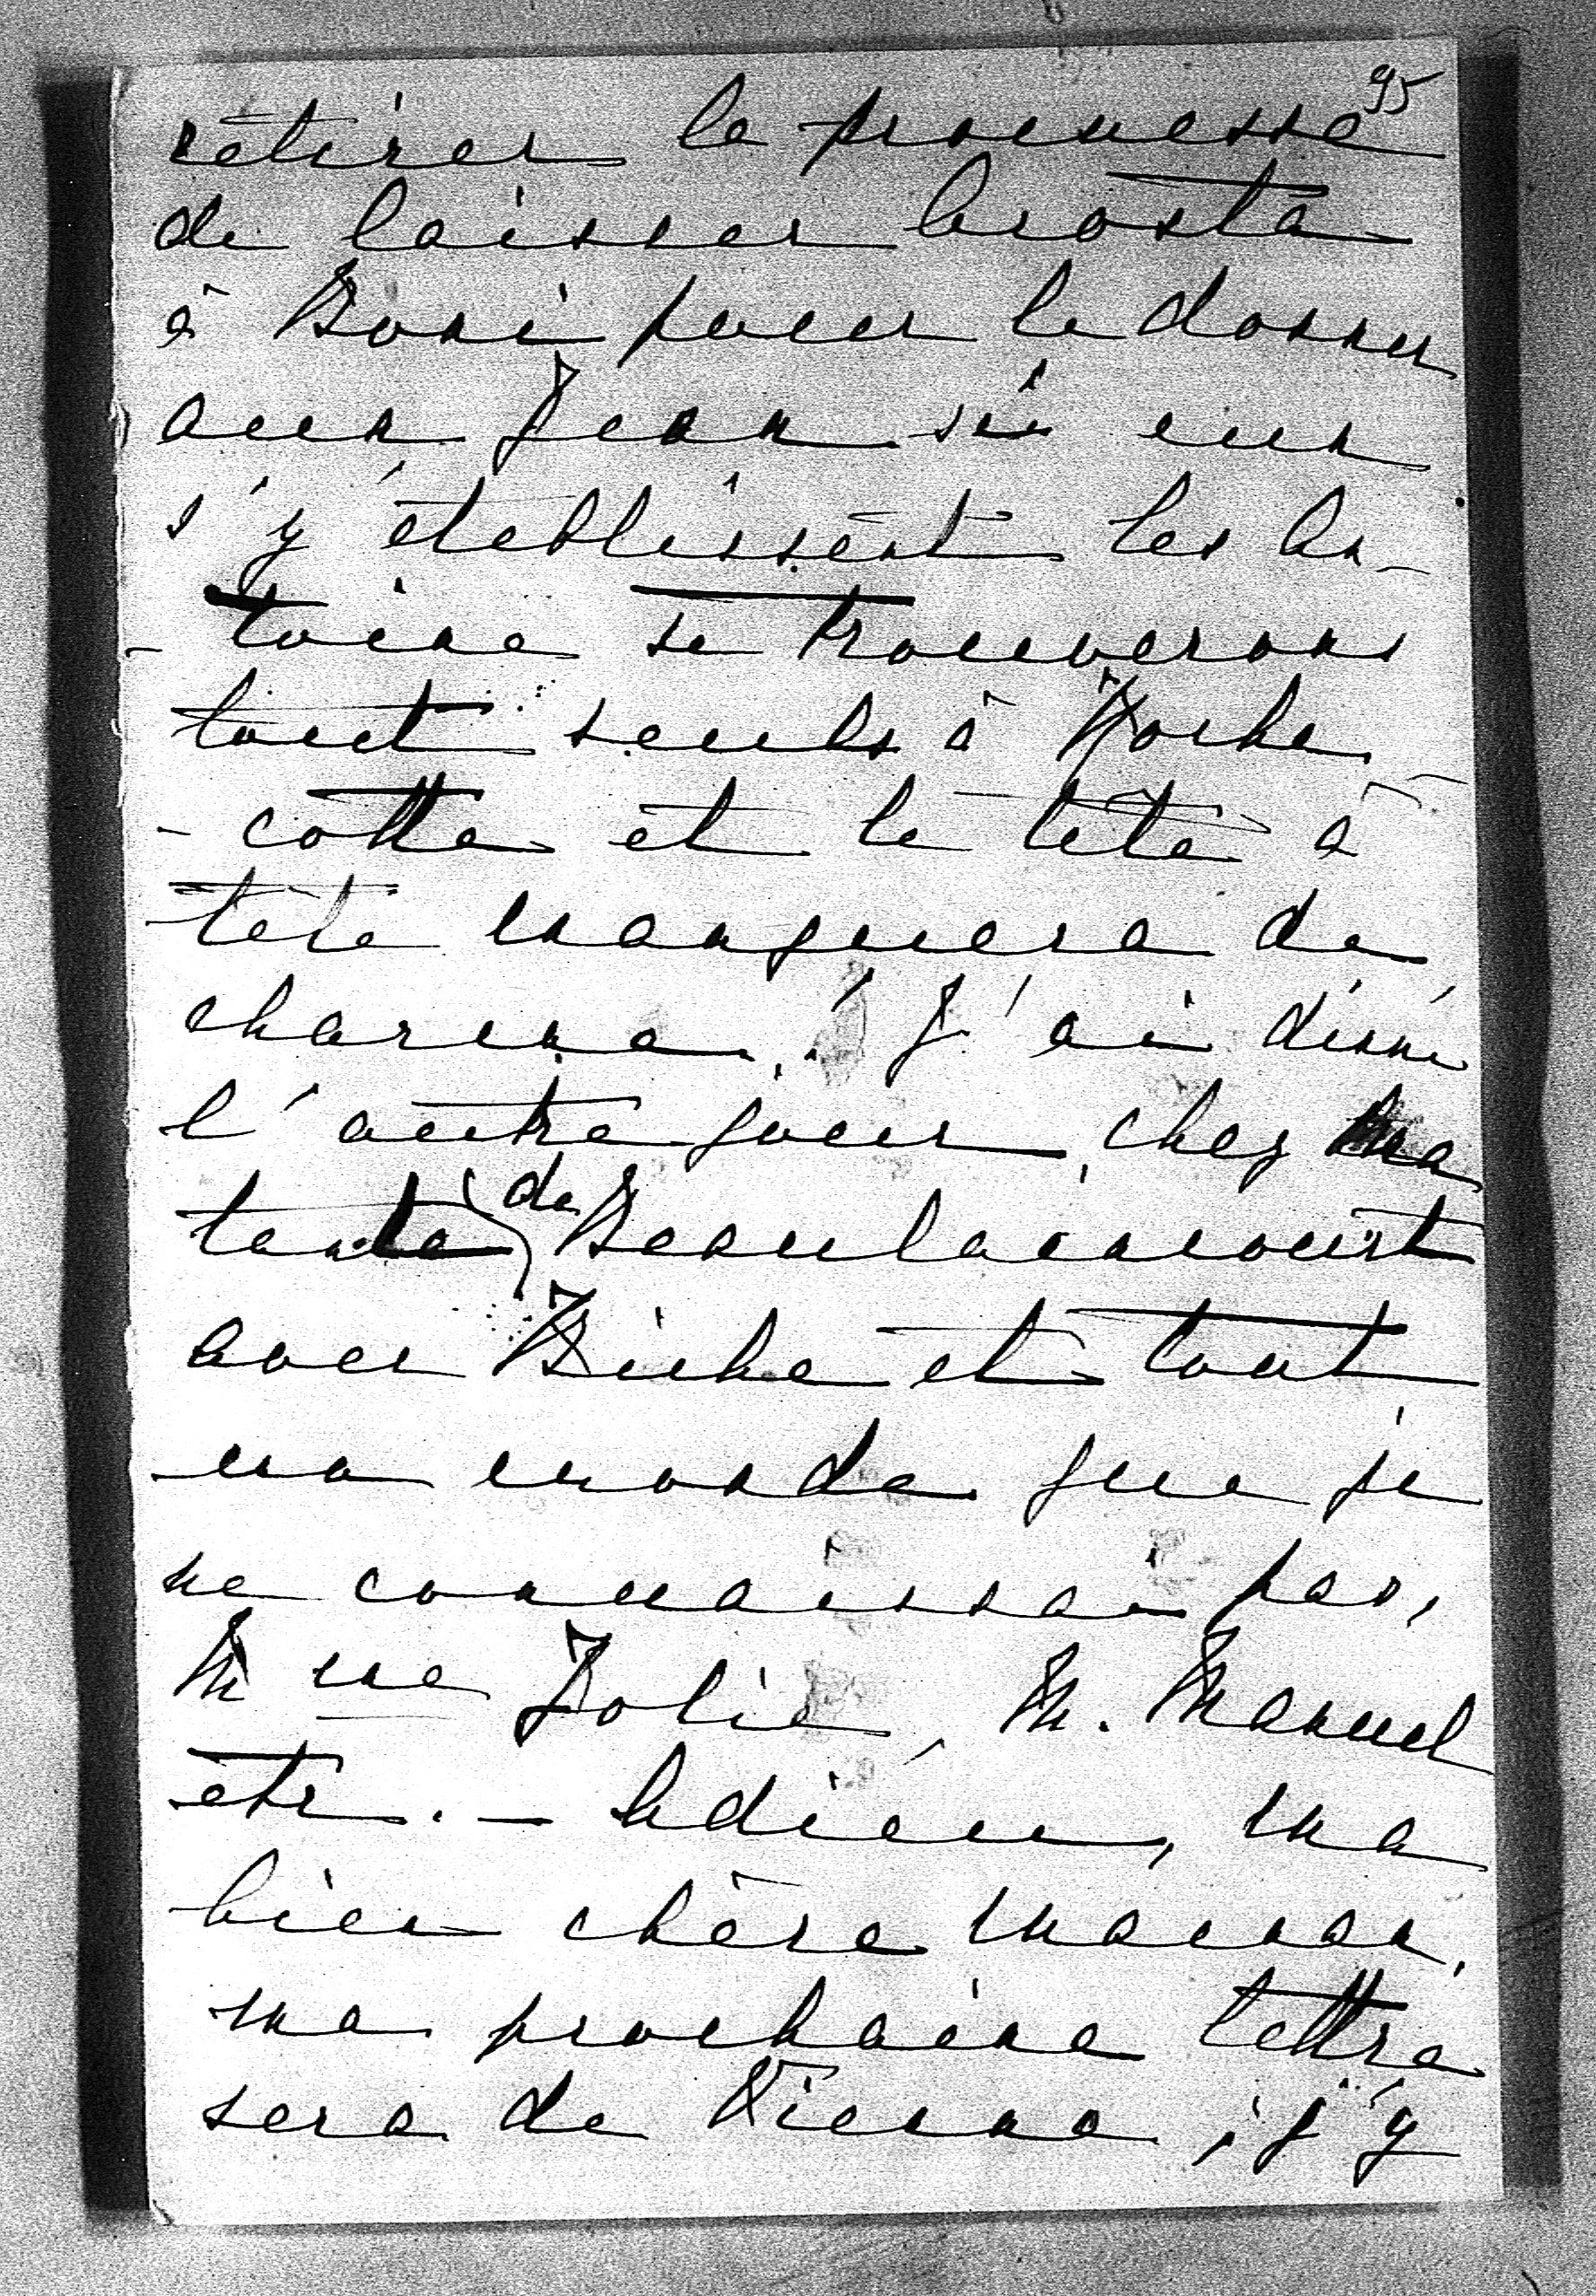 95
retirer la promesse
de laisser Crosta
à Boni pour le donner
aux Jean si eux
s'y établissent les An-
-toine se trouverons
tout seuls à Roche
-cotte et le tête à
tête manquera de
charme. J'ai diné
l'autre jour chez ma
tante de Beaulaincourt
avec Biche et tout
un monde que je
ne connaissai pas,
Mme Jolie, M. Manuel
etc. - Adieu, ma
bien chère maman,
ma prochaine lettre
sera de Vienne, j'y